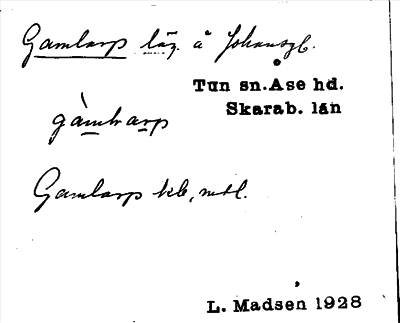 Gamlarp läg. å Johansgb.
Tun sn. Åse hd.
Skarab. län
gàmḷarp
Gamlarp kb, mtl.
L. Madsen 1928